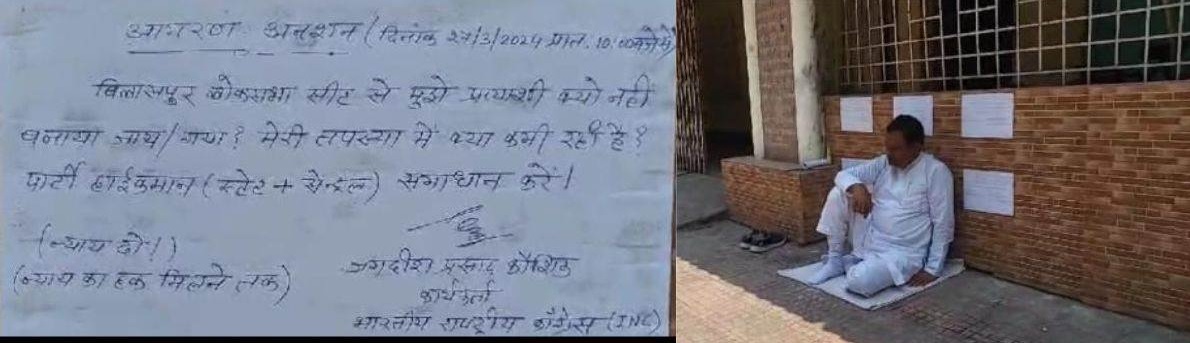 आमरण अनशन (दिनांक 27/3/2024 प्रात. 10:00बजे से)
बिलासपुर लोकसभा सीट से मुझे प्रत्याशी क्यो नही
बनाया जाय/गया? मेरी तपस्या में क्या कमी रही है?
पार्टी हाईकमान (स्टेट + सेन्ट्रल) समाधान करें।
(न्याय दो!)
(न्याय का हक मिलने तक)
जगदीश प्रसाद कौशिक
कार्यकर्ता
भारतीय राष्ट्रीय काँग्रेस (INC)